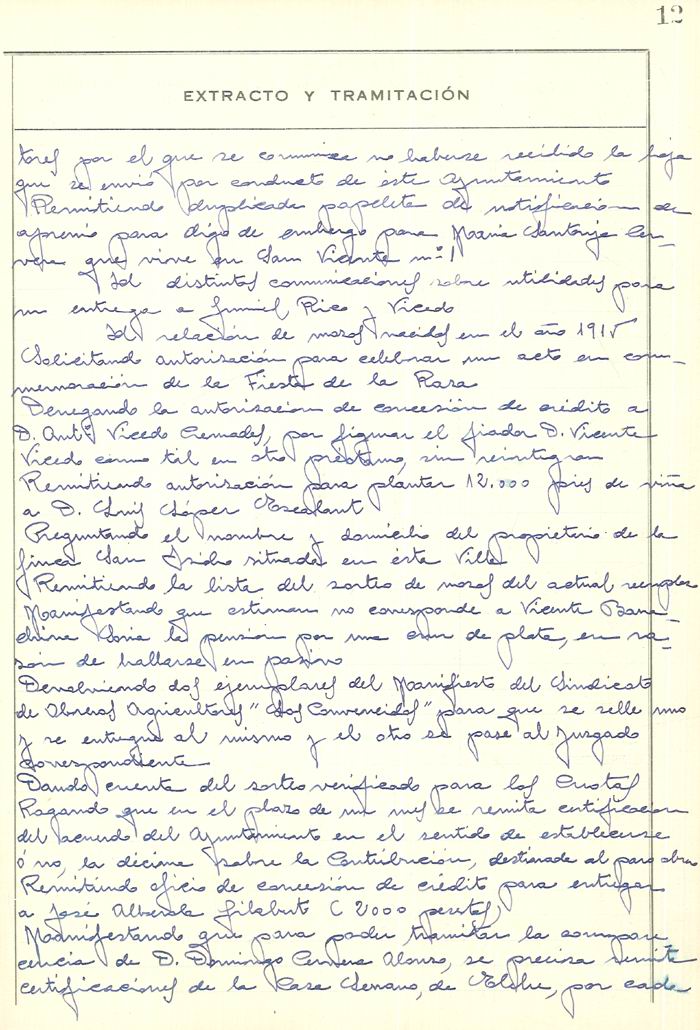 12
EXTRACTO Y TRAMITACIÓN
tores por el que se comunica no haberse recibido la hoja
que se envió por conducto de éste Ayuntamiento
Remitiendo duplicada papeleta de notificacion de
apremio para digo de embargo para Maria Santonja Cer-
vera que vive en San Vicente nº 1
Id distintas comunicaciones sobre utilidades para
su entrega a Jumiel Rico y Vicedo
Id relación de mozos nacidos en el año 1915
Solicitando autorización para celebrar un acto en con-
memoración de la Fiesta de la Raza
Denegando la autorizacion de concesión de crédito a
D. Antº Vicedo Cremades, por figurar el fiador D. Vicente
Vicedo como tal en otro préstamo, sin reintegrar
Remitiendo autorización para plantar 12.000 pies de viña
a D. Luis López Escalant
Preguntando el nombre y domicilio del propietario de la
finca San Isidro situada en ésta Villa
Remitiendo la lista del sorteo de mozos del actual reemplazo
Manifestando que estiman no corresponde a Vicente Bana-
china la pensión por una cruz de plata, en ra-
zón de hallarse en pasivo
Devolviendo dos ejemplares del Manifiesto del Sindicato
de Obreros Agricultores "Los Convencidos" para que se selle uno
y se entregue al mismo y el otro se pase al Juzgado
correspondiente
Dando cuenta del sorteo verificado para los Cuotas
Rogando que en el plazo de un mes se remita certificacion
del acuerdo del Ayuntamiento en el sentido de establecerse
ó no, la décima sobre la Contribución, destinada al paro obrero
Remitiendo oficio de concesión de crédito para entregar
a José Alberola Gilabert (2000 pesetas)
Manifestando que para poder tramitar la compare
cencia de D. Domingo Cervera Alonso, se precisa remita
certificaciones de la Casa Serrano, de Elche, por cada